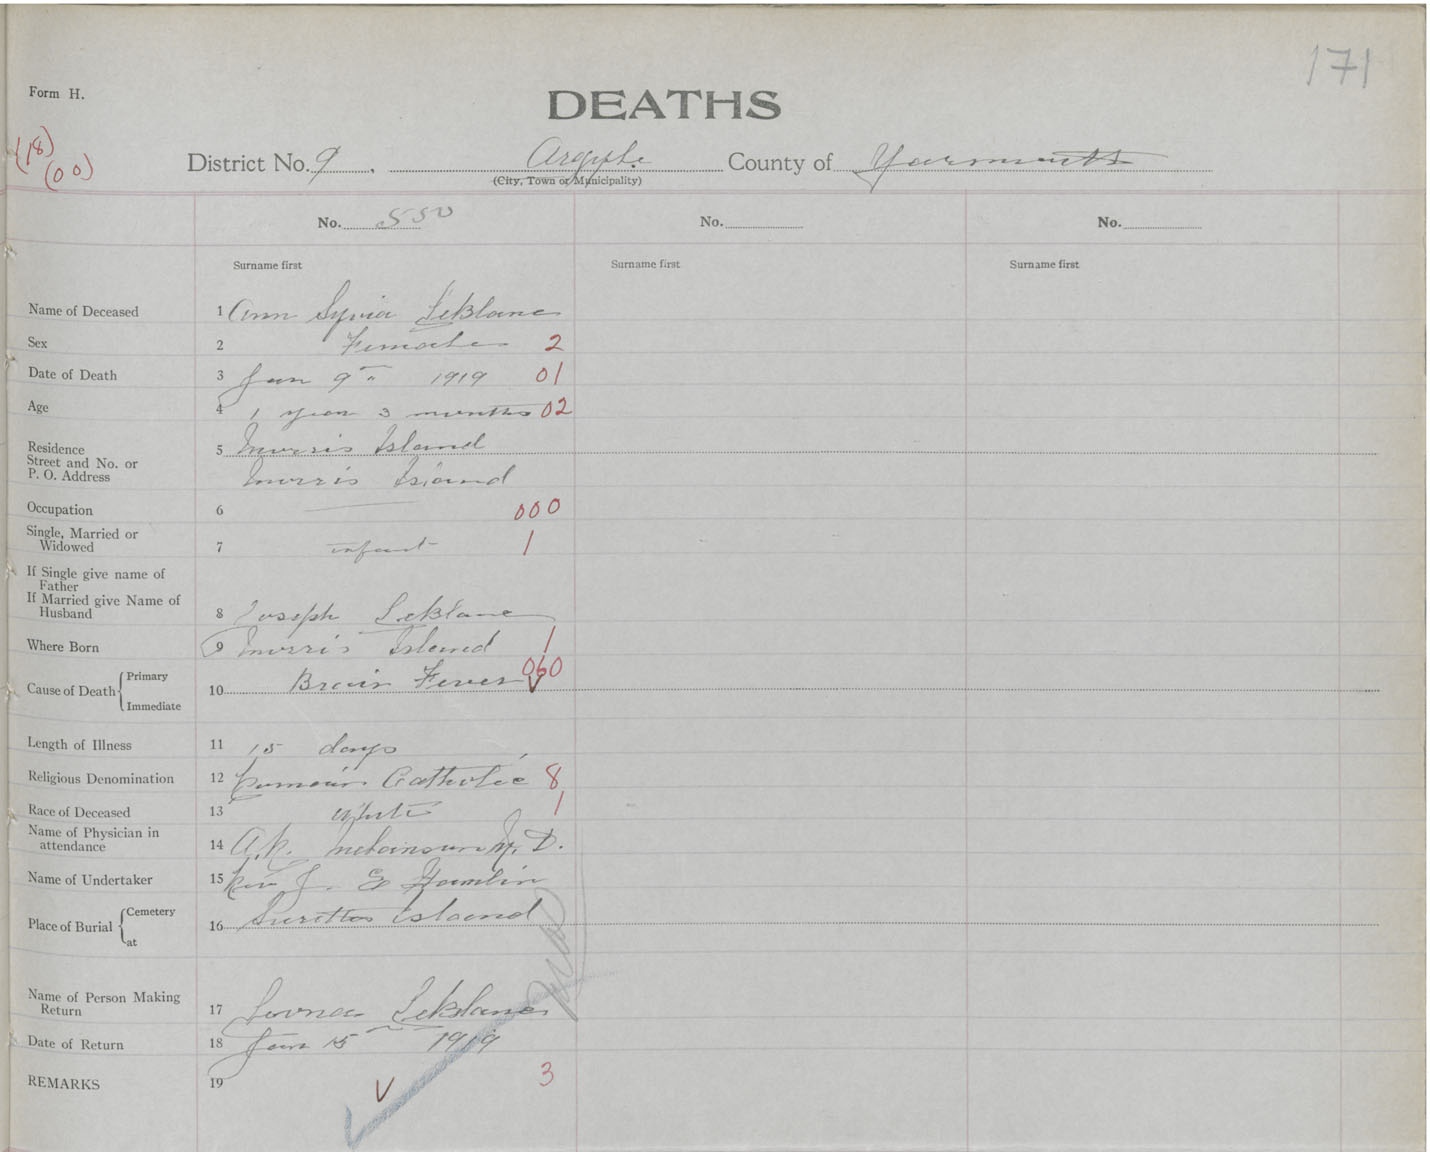 171
Form H.
DEATHS
(18)
(00)
District No. 9. Argyle County of Yarmouth
(City, Town or Municipality)
No. 550 No. No.
Surname first Surname first Surname first
Name of Deceased 1 Ann Sylvia LeBlanc
Sex 2 Female 2
Date of Death 3 Jan 9th 1919 01
Age 4 1 year 3 months 02
Residence
Street and No. or
P. O. Address
5 Morris Island
Morris Island
Occupation 6 000
Single, Married or
Widowed
7 infant 1
If Single give name of
Father
If Married give Name of
Husband
8 Joseph LeBlanc
Where Born 9 Morris Island 1
Cause of Death { Primary
Immediate
10 Brain Fever 060
Length of Illness 11 15 days
Religious Denomination 12 Roman Catholic 8
Race of Deceased 13 White 1
Name of Physician in
attendance
14 A. M. D.
Name of Undertaker 15 Rev J. E Hamlin
Place of Burial { Cemetery
at
16 Surettes Island
Name of Person Making
Return
17 LeBlanc
Date of Return 18 Jan 15 1919
REMARKS 19 3